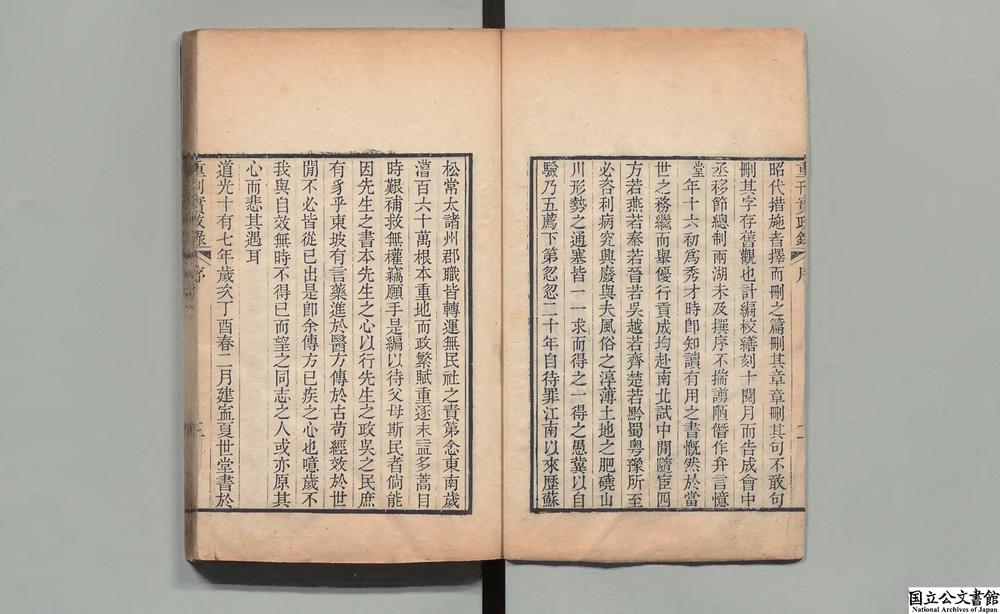 重刊實政錄 序 二
昭代措施者擇而刪之篇刪其章章刪其句不敢句
刪其字存舊觀也計編校繕刻十閱月而告成會中
丞移節總制兩湖未及撰序不揣譾陋僭作弁言憶
堂年十六初爲秀才時卽知讀有用之書慨然於當
世之務繼而舉優行貢成均赴南北試中閒隨宦四
方若燕若秦若晉若吳越若齊楚若黔蜀粤豫所至
必咨利病究興廢與夫風俗之淳薄土地之肥磽山
川形勢之通塞皆一一求而得之一得之愚冀以自
驗乃五薦下第忽忽二十年自待罪江南以來歷蘇
松常太諸州郡職皆轉運無民社之責第念東南歲
漕百六十萬根本重地而政繁賦重逐末益多蒿目
時艱補救無權竊願手是編以待父母斯民者倘能
因先生之書本先生之心以行先生之政吳之民庶
有豸乎東坡有言藥進於醫方傳於古苟經效於世
閒不必皆從已出是卽余傳方已疾之心也噫歲不
我與自效無時不得已而望之同志之人或亦原其
心而悲其遇耳
道光十有七年歲次丁酉春二月建寍夏世堂書於
重刊實政錄 序 三
国立公文書館
National Archives of Japan